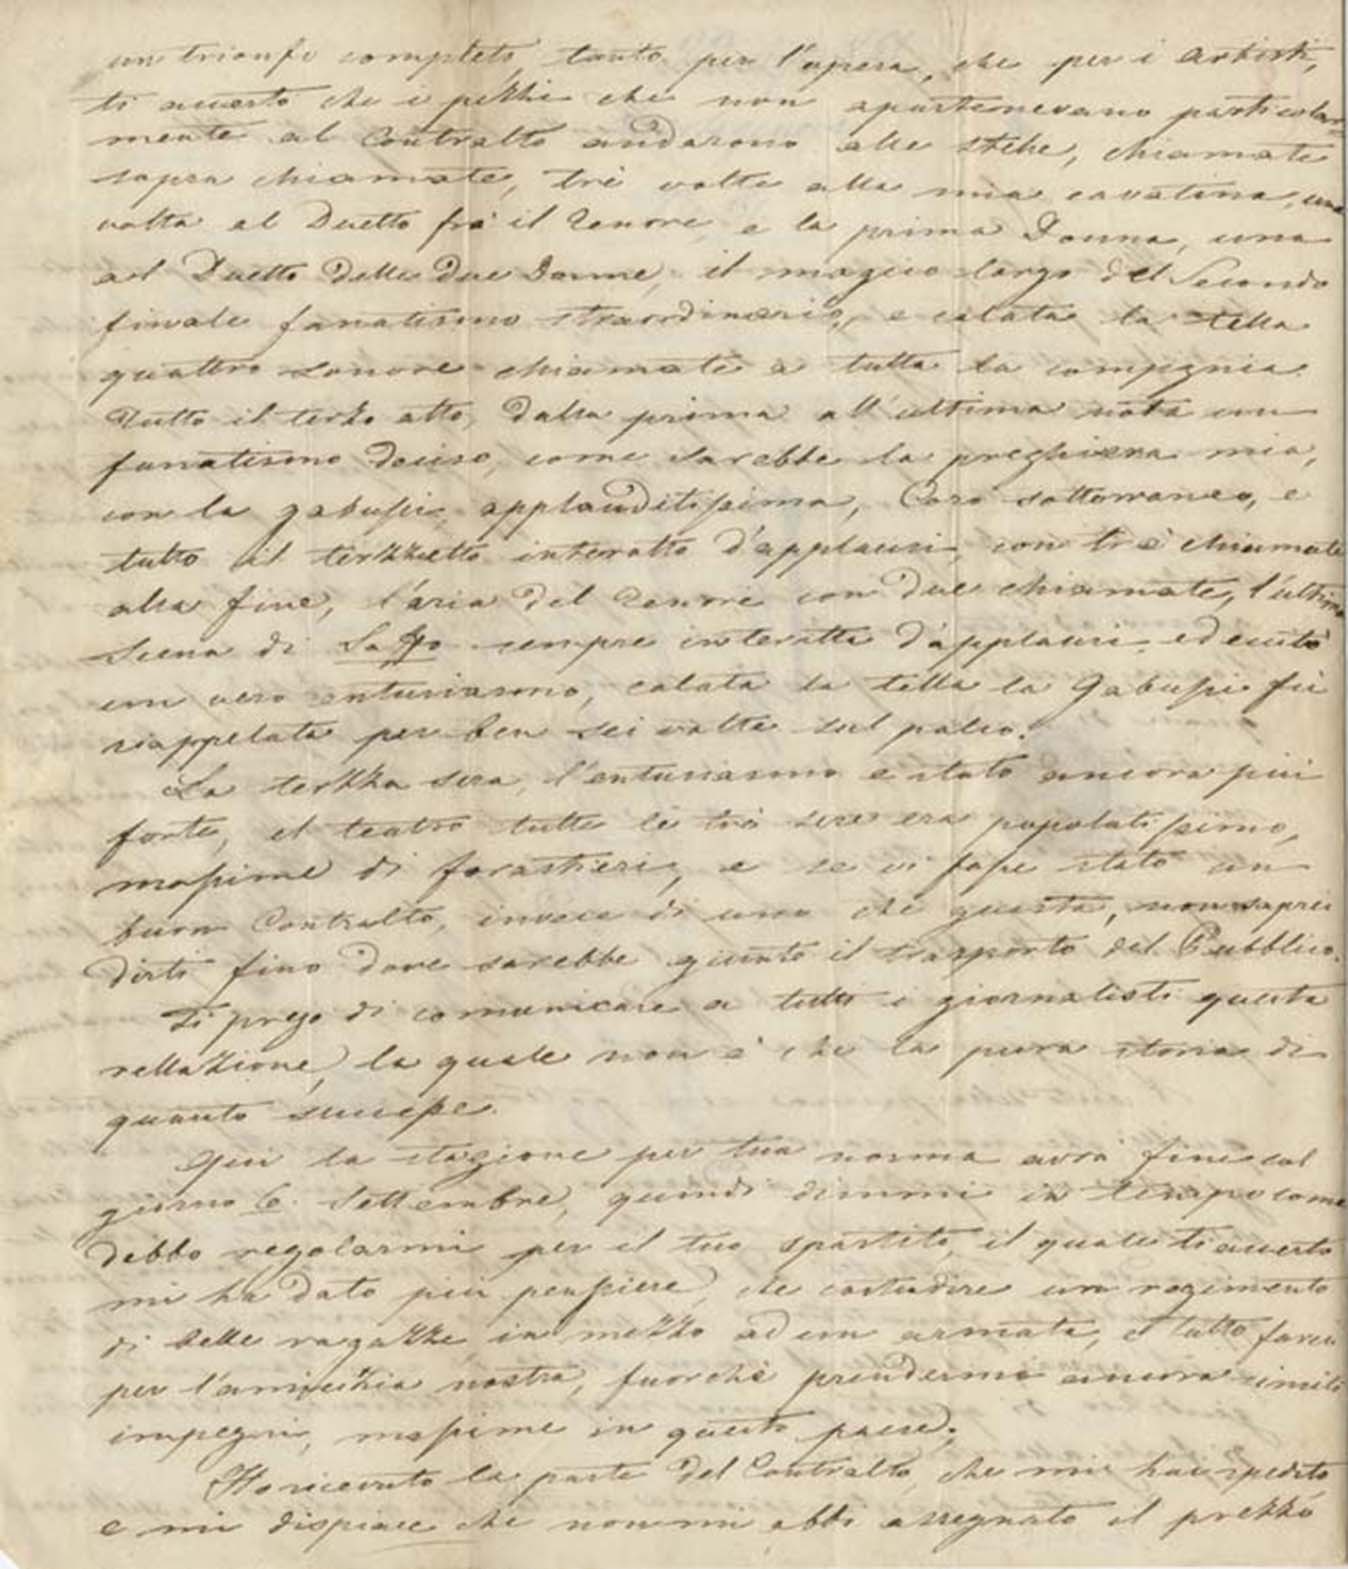 un trionfo completo, tanto per l'opera, che per i artisti,
ti averto che i pezzi che non apartenevano particolar=
mente al Contralto andarono alle stelle, chiamate
sopra chiamate, trè volte alla mia cavatina, una
volta al Duetto frà il Tenore, e la prima Donna, una
al Duetto delle due Donne, il magico largo del Secondo
finale fanatismo straordinario, e calata la tella
quattro sonore chiamate a tutta la compagnia.
Tutto il terzo atto, dalla prima all'ultima nota un
fanatismo deciso, come sarebbe la preghiera mia,
con la Gabussi, applauditissima, Coro sotterraneo, e
tutto il terzzetto interotto d'applausi, con trè chiamate
alla fine, l'aria del Tenore con due chiamate, l'ultima
Scena di Saffo sempre interotta d'applausi ed eccitò
un vero entusiasmo, calata la tella la Gabussi fù
riappelata per ben sei volte sul palco.
La terzza sera, l'entusiasmo è stato ancora più
forte, il teatro tutte le trè sere era popolatissimo,
massime di forastieri, e se vi fosse stato un
buon Contralto, invece di uno che guasta, non saprei
dirti fino dove sarebbe giunto il trasporto del Pubblico.
Ti prego di comunicare a tutti i giornalisti questa
rellazione, la quale non è che la pura storia di
quanto successe.
Qui la stagione per tua norma avrà fine col
giorno 6. Settembre, quindi dimmi in tempo come
debbo regolarmi per il tuo spartito, il quale ti averto
mi ha dato più pensiere, che custudire un regimento
di belle ragazze in mezzo ad un armata, e tutto farei
per l'amicizia nostra, fuorchè prendermi ancora simili
impegni, massime in questo paese.
Ho ricevuto la parte del Contralto, che mi hai spedito
e mi dispiace che non mi abbi assegnato il prezzo